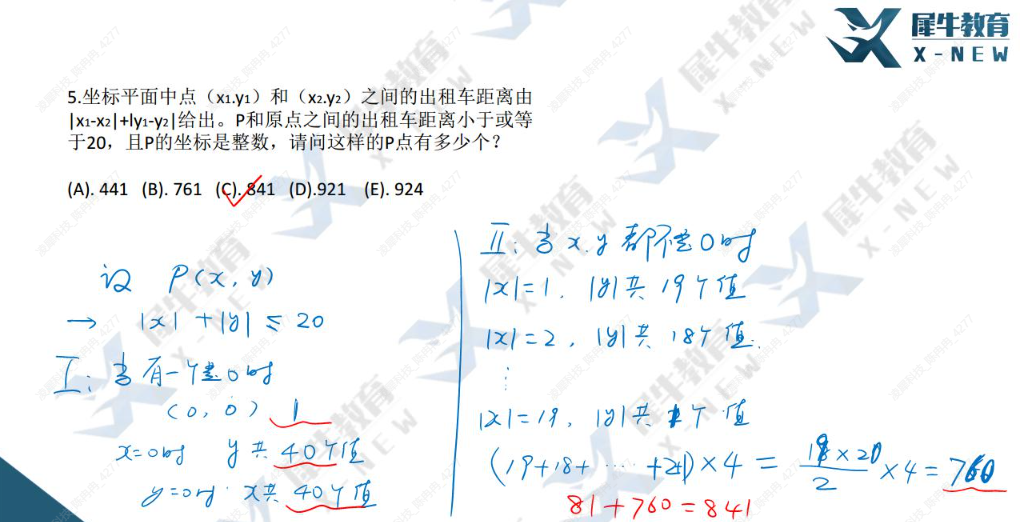 犀牛教育
X-NEW
5.坐标平面中点（x₁.y₁）和（x₂.y₂）之间的出租车距离由
|x₁-x₂|+ly₁-y₂|给出。P和原点之间的出租车距离小于或等
于20，且P的坐标是整数，请问这样的P点有多少个？
(A). 441 (B). 761 (C). 841 (D).921 (E). 924
设 P(x, y)
→ |x| + |y| ≤ 20
I: 当有一个是0时
(0, 0) 1
x=0时 y共40个值
y=0时 x共40个值
II: 当x.y都不是0时
|x|=1, |y|共19个值
|x|=2, |y|共18个值.
⋮
|x|=19, |y|共1个值
(19+18+ ⋯ +2+1)×4 = 19×20/2 ×4 = 760
81+760=841